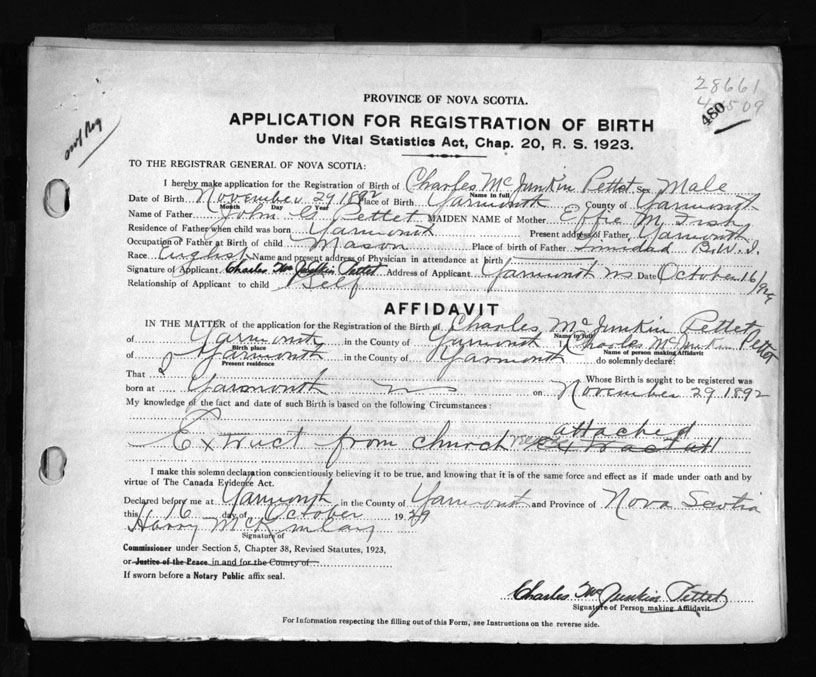 28661
480
PROVINCE OF NOVA SCOTIA.
APPLICATION FOR REGISTRATION OF BIRTH
Under the Vital Statistics Act, Chap. 20, R. S. 1923.
TO THE REGISTRAR GENERAL OF NOVA SCOTIA:
I hereby make application for the Registration of Birth of Charles McJunkin Pettet Sex Male
Name in full
Date of Birth November 29 1892 Place of Birth Yarmouth County of Yarmouth
Month Day Year
Name of Father John G Pettet MAIDEN NAME of Mother Effie M Fish
Residence of Father when child was born Yarmouth Present address of Father Yarmouth
Occupation of Father at Birth of child Mason Place of birth of Father Trinidad B.W.I.
Race English Name and present address of Physician in attendance at birth
Signature of Applicant Charles McJunkin Pettet Address of Applicant Yarmouth NS Date October 16/929
Relationship of Applicant to child Self
AFFIDAVIT
IN THE MATTER of the application for the Registration of the Birth of Charles McJunkin Pettet
Name in full
of Yarmouth in the County of Yarmouth I Charles McJunkin Pettet
Birth place Name of person making Affidavit
of Yarmouth in the County of Yarmouth do solemnly declare:
Present residence
That I Whose Birth is sought to be registered was
born at Yarmouth NS on November 29 1892
My knowledge of the fact and date of such Birth is based on the following Circumstances:
Extract from church attached
I make this solemn declaration conscientiously believing it to be true, and knowing that it is of the same force and effect as if made under oath and by
virtue of The Canada Evidence Act.
Declared before me at Yarmouth in the County of Yarmouth and Province of Nova Scotia
this 16 day of October 1929
Harry McKinlay
Signature of
Commissioner under Section 5, Chapter 38, Revised Statutes, 1923,
or Justice of the Peace in and for the County of
If sworn before a Notary Public affix seal.
Charles McJunkin Pettet
Signature of Person making Affidavit
For Information respecting the filling out of this Form, see Instructions on the reverse side.